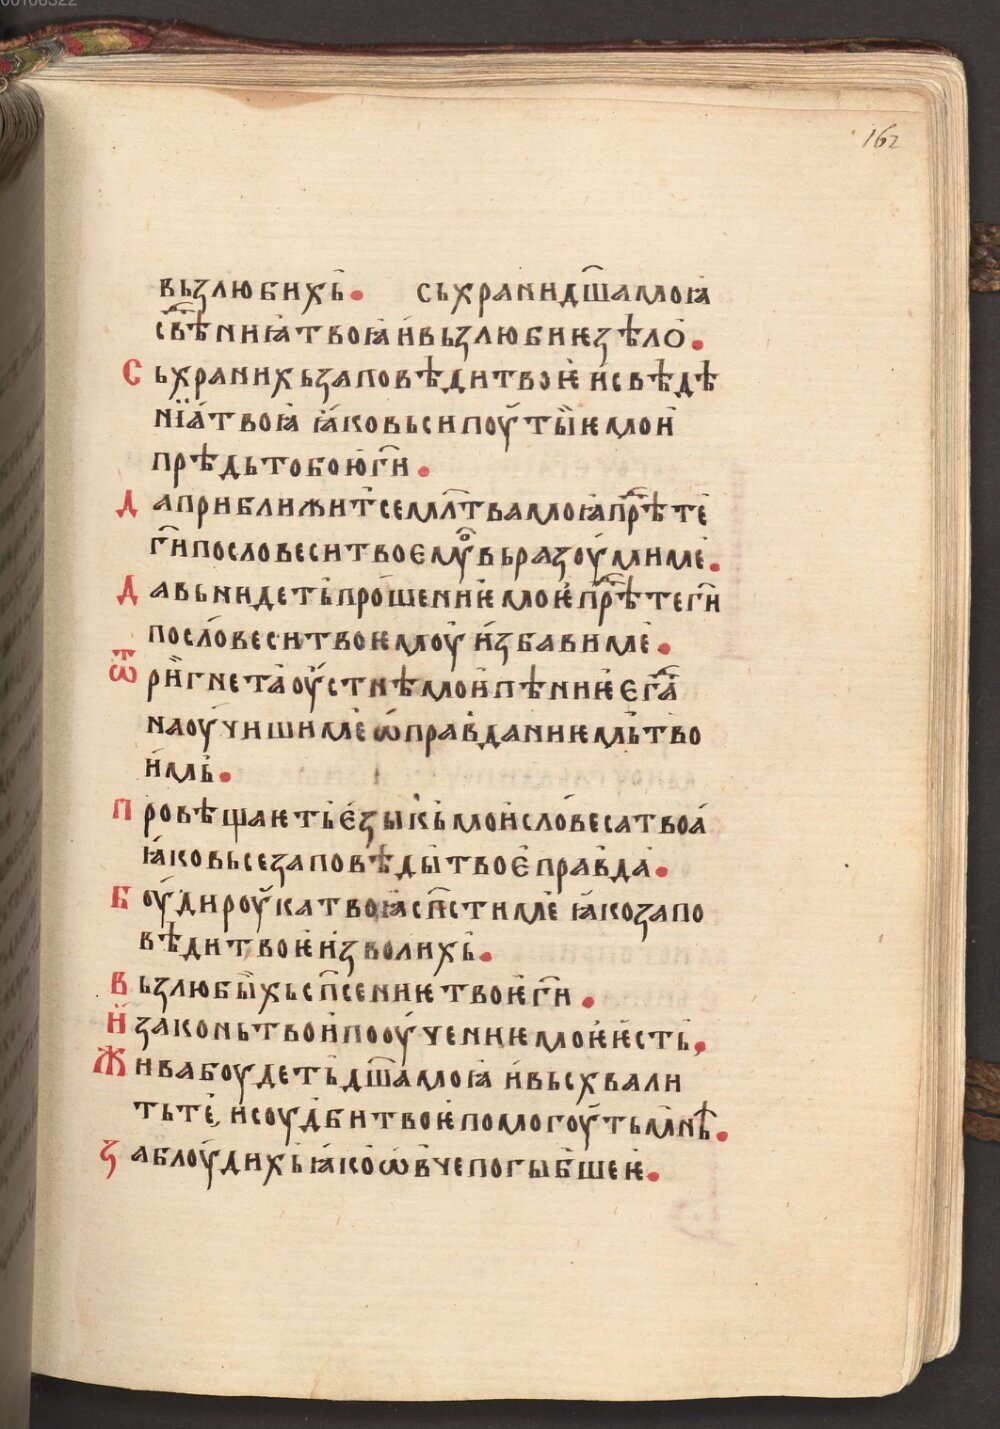 00106322
162
вьзлюбихь. сьхранидш҃амоꙗ
свⷣѣниꙗтвоꙗ ивьзлюбиѥзѣло.
Сьхранихьзаповѣдитвоѥ исвѣдѣ
нїатвоꙗ ꙗковьсипоутыѥмои
прѣдьтобоюгⷭ҇и.
Даприближитсемл҃твамоꙗпрⷣѣте
гⷭ҇ипословеситвоемоу вьразоумиме.
Давьнидетьпрошениѥмоѥпрⷣѣтегⷭ҇и
пословеситвоѥмоу избавиме.
Ѿригнетаоустнѣмоипѣниѥ егⷣа
наоучишиме ѡправданиѥмьтво
имь.
Провѣщаѥтьезыкьмоисловесатвоа
ꙗковьсезаповѣдытвое правда.
Боудироукатвоꙗспⷭ҇стиме ꙗкозапо
вѣдитвоѥизволихь.
Вьзлюбыхьспⷭ҇сениѥтвоѥгⷭ҇и.
Изаконьтвоипооучениѥмоѥѥсть,
Живабоудетьдш҃амоꙗ ивьсхвали
тьте, исоудбитвоѥпомогоутьмнѣ.
Заблоудихьꙗкоѡвчепогыбшеѥ.